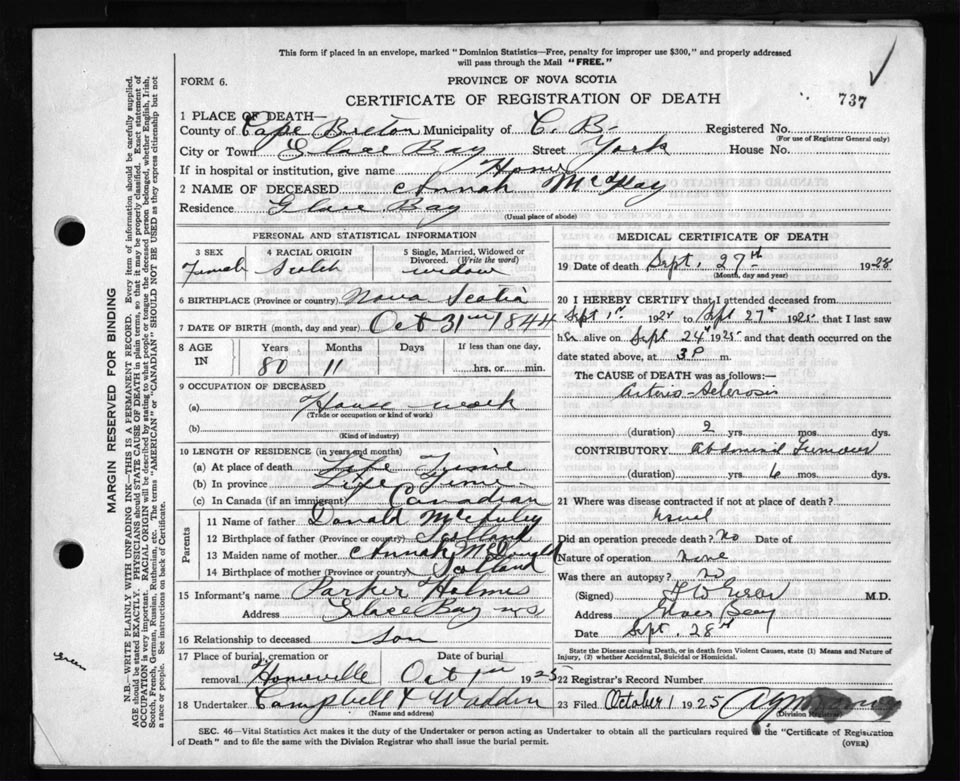 This form if placed in an envelope, marked "Dominion Statistics—Free, penalty for improper use $300," and properly addressed
will pass through the Mail "FREE."
FORM 6.
PROVINCE OF NOVA SCOTIA
CERTIFICATE OF REGISTRATION OF DEATH
737
1 PLACE OF DEATH—
County of Cape Breton Municipality of C. B. Registered No.
(For use of Registrar General only)
City or Town Glace Bay Street York House No.
If in hospital or institution, give name Home
2 NAME OF DECEASED Annah McKay
Residence Glace Bay
(Usual place of abode)
PERSONAL AND STATISTICAL INFORMATION
3 SEX 4 RACIAL ORIGIN 5 Single, Married, Widowed or
Divorced. (Write the word)
Female Scotch widow
6 BIRTHPLACE (Province or country) Nova Scotia
7 DATE OF BIRTH (month, day and year) Oct 31 1844
8 AGE IN Years Months Days If less than one day,
80 11 hrs. or min.
9 OCCUPATION OF DECEASED
(a) House work
(Trade or occupation or kind of work)
(b)
(Kind of industry)
10 LENGTH OF RESIDENCE (in years and months)
(a) At place of death Life Time
(b) In province Life Time
(c) In Canada (if an immigrant) Canadian
Parents
11 Name of father Donald McAuley
12 Birthplace of father (Province or country) Scotland
13 Maiden name of mother Annah McDonald
14 Birthplace of mother (Province or country) Scotland
15 Informant's name Parker Holmes
Address Glace Bay NS
16 Relationship to deceased son
17 Place of burial, cremation or Date of burial
removal Homeville Oct 1 1925
18 Undertaker Campbell & Wadden
(Name and address)
MEDICAL CERTIFICATE OF DEATH
19 Date of death Sept. 27th 1925
(Month, day and year)
20 I HEREBY CERTIFY that I attended deceased from
Sept 1st 192 to Sept 27th 1925 that I last saw
her alive on Sept 24th 1925 and that death occurred on the
date stated above, at 3 P m.
The CAUSE OF DEATH was as follows:—
Arterio-Sclerosis
(duration) 2 yrs. mos. dys.
CONTRIBUTORY Abdominal Tumour
(duration) yrs. 6 mos. dys.
21 Where was disease contracted if not at place of death?
Did an operation precede death? No Date of
Nature of operation None
Was there an autopsy? No
(Signed) M.D.
Address Glace Bay
Date Sept. 28th
State the Disease causing Death, or in death from Violent Causes, state (1) Means and Nature of
Injury, (2) whether Accidental, Suicidal or Homicidal.
22 Registrar's Record Number
23 Filed October 1 1925
(Division Registrar)
SEC. 46—Vital Statistics Act makes it the duty of the Undertaker or person acting as Undertaker to obtain all the particulars required the "Certificate of Registration
of Death" and to file the same with the Division Registrar who shall issue the burial permit.
(OVER)
MARGIN RESERVED FOR BINDING
N.B.—WRITE PLAINLY WITH UNFADING INK—THIS IS A PERMANENT RECORD. Every item of information should be carefully supplied.
AGE should be stated EXACTLY. PHYSICIANS should STATE CAUSE OF DEATH in plain terms, so that it may be properly classified. Exact statement of
OCCUPATION is very important. RACIAL ORIGIN will be described by stating to what people or tongue the deceased person belonged, whether English, Irish,
Scotch, French, German, Russian, Ruthenian, etc. The terms "AMERICAN" or "CANADIAN" SHOULD NOT BE USED as they express citizenship but not
a race or people. See instructions on back of Certificate.
Green